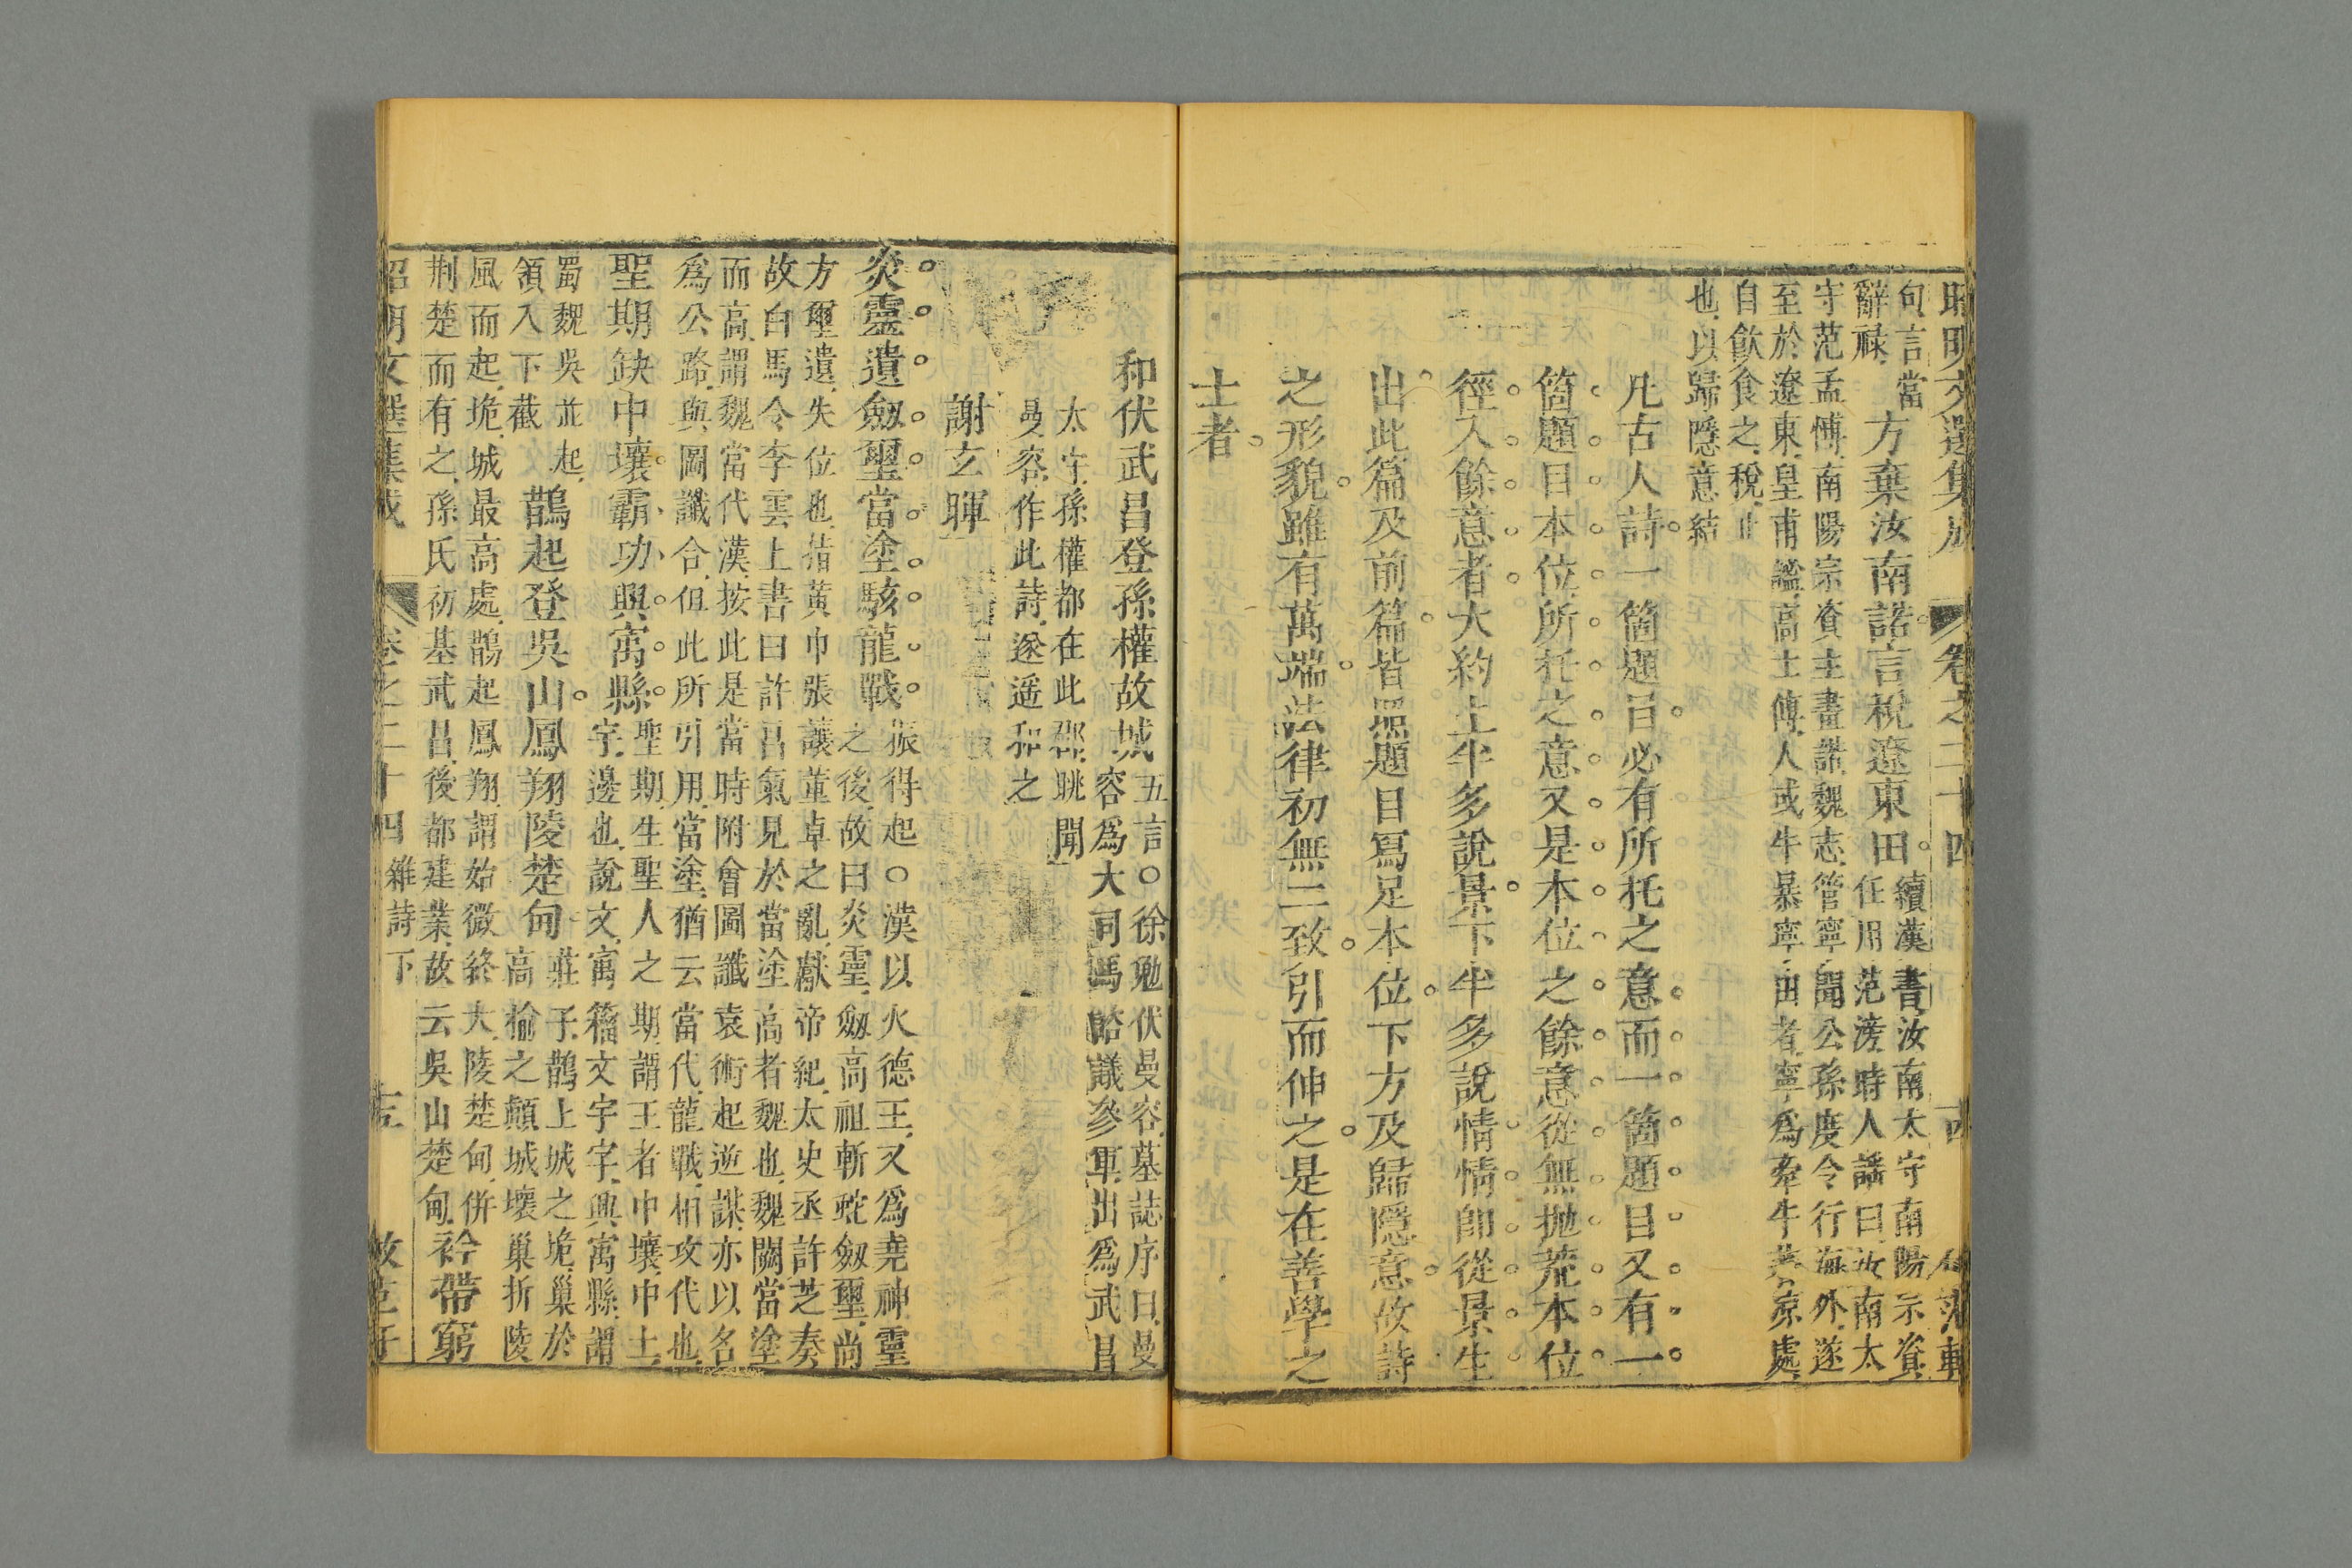 昭明文選集成 卷之二十四
句言當
辭祿
方棄汝南諾言稅遼東田
續漢書汝南太守南陽宗資
任用范滂時人謠曰汝南太
守范孟博南陽宗資主畫諾魏志管寧聞公孫度令行海外遂
至於遼東皇甫謐高士傳人或牛暴寧田者寧爲牽牛着凉處
自飲食之稅止
也以歸隱意結
凡古人詩一箇題目必有所托之意而一箇題目又有一
箇題目本位所托之意又是本位之餘意從無拋荒本位
徑入餘意者大約上半多說景下半多說情情卽從景生
出此篇及前篇皆照題目寫足本位下方及歸隱意故詩
之形貌雖有萬端法律初無二致引而伸之是在善學之
士者
和伏武昌登孫權故城
五言○徐勉伏曼容墓誌序曰曼
容爲大司馬諮議參軍出爲武昌
太守孫權都在此郡眺聞
曼容作此詩遂遥和之
謝玄暉
炎靈遺劒璽當塗駭龍戰
振得起○漢以火德王又爲堯神靈
之後故曰炎靈劒高祖斬蛇劒璽尚
方璽遺失位也指黃巾張讓董卓之亂獻帝紀太史丞許芝奏
故白馬令李雲上書曰許昌氣見於當塗高者魏也魏闕當塗
而高謂魏當代漢按此是當時附會圖讖袁術起逆謀亦以名
爲公路與圖讖合但此所引用當塗猶云當代龍戰相攻代也
聖期缺中壤霸功興寓縣
聖期生聖人之期謂王者中壤中土
宇邊也說文寓籀文宇字興寓縣謂
蜀魏吳並起
領入下截
鵲起登吳山鳳翔陵楚甸
莊子鵲上城之垝巢於
高楡之顛城壞巢折陵
風而起垝城最高處鵲起鳳翔謂始微終大陵楚甸併
荆楚而有之孫氏初基武昌後都建業故云吳山楚甸
衿帶窮
昭明文選集成 卷之二十四 雜詩下